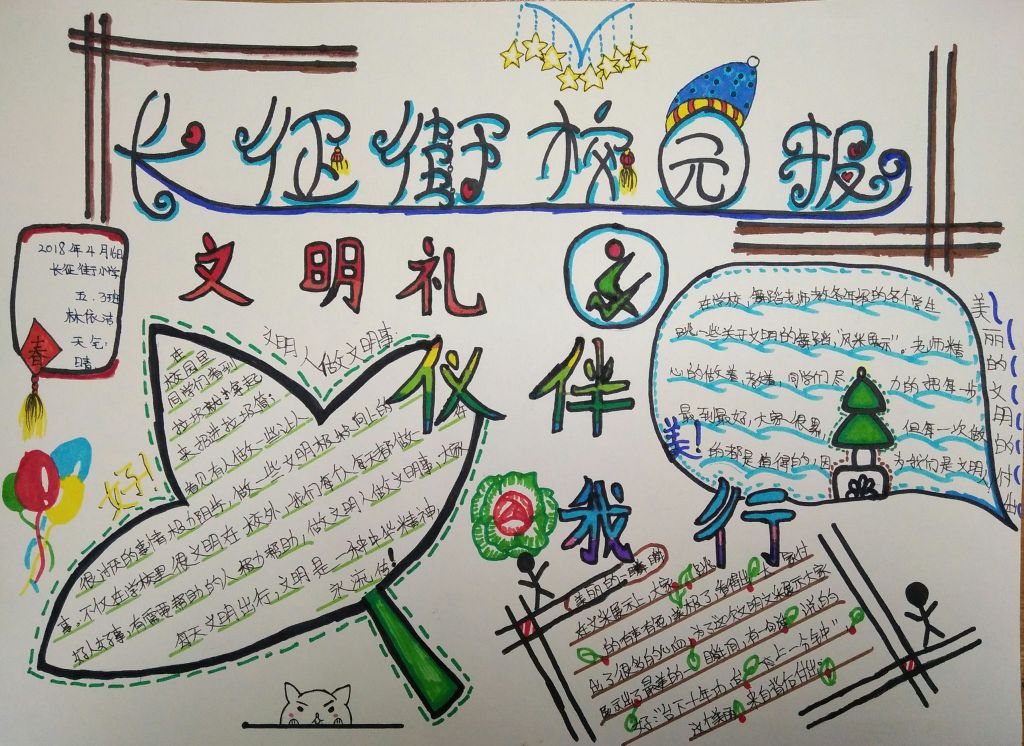 长征街校园报
2018年4月16日
长征街小学
五.3班
林依洁
天气:
晴
春
文明礼
仪伴
我行
文明人做文明事
在
校园里
同学们看到
垃圾都会拿起
来扔进垃圾箱,
看见有人做一些让人
很讨厌的事情极力阻挡,做一些文明积极向上的
事。不仅在学校里很文明在校外,我们每个人每天都做一
好人好事,有需要帮助的人极力帮助,做文明人做文明事,大家
每天文明出行,文明是一种中华精神
永流传!
好!
在学校,舞蹈老师教各年级的各个学生
跳一些关于文明的舞蹈,"风采展示"。老师精
心的做着,教着,同学们尽力的把每一步
最到最好,大家很累,但每一次做
的都是值得的,因为我们是文明人
美!
美丽的文明的付出
美丽的
在风采展示上,大家
的有声有色,
好:"台下十年功,台上一分钟"